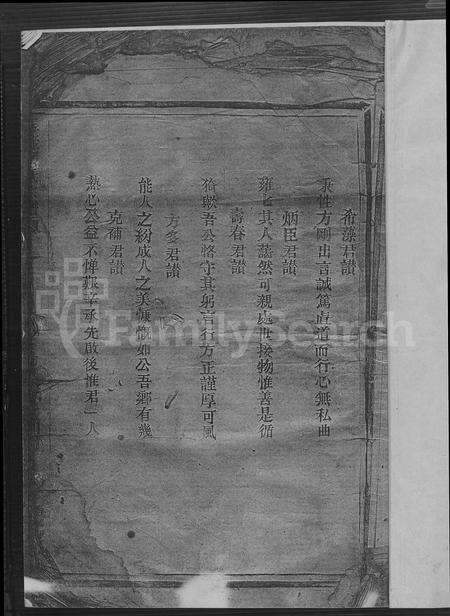 衍澡君讃
秉性方剛出言誠篤直道而行心無私曲
炳臣君讃
雍雍其人藹然可親處世接物惟善是循
壽春君讃
猗歟吾公恪守其躬言行方正謹厚可風
方多君讃
能人之紛成人之美慷慨如公吾鄉有幾
克補君讃
熱心公益不憚艱辛承先啟後惟君一人
FamilySearch